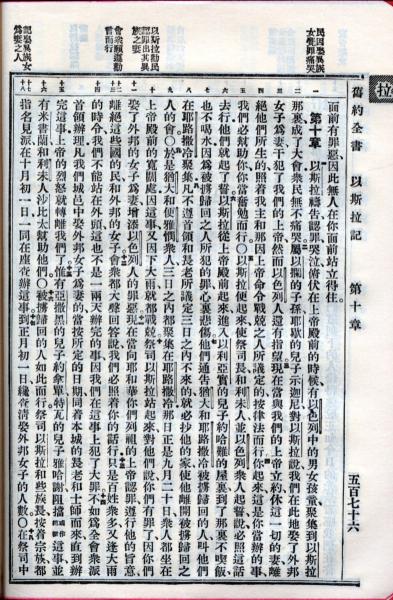 拉
舊約全書　以斯拉記　第十章　五百七十六
民因娶異族女聲罪痛哭
以斯拉勸民認罪出其異族之妻
會衆願遵勸言而行
記娶異族女爲妻之人
面前有罪惡因此無人在你面前站立得住。
第十章　以斯拉禱告認罪哭泣俯伏在上帝殿前的時候有以色列中的男女孩童聚集到以斯拉
那裏成了大會衆民無不痛哭屬以攔的子孫耶歇的兒子示迦尼對以斯拉說我們在此地娶了外邦
女子爲妻干犯了我們的上帝然而以色列人還有指望現在當與我們的上帝立約休這一切的妻離
絕他們所生的照着我主和那因上帝命令戰兢之人所議定的按律法而行你起來這是你當辦的事
我們必幫助你你當奮勉而行○以斯拉便起來使祭司長和利未人並以色列衆人起誓說必照這話
去行他們就起了誓以斯拉從上帝殿前起來進入以利亞實的兒子約哈難的屋裏到了那裏不喫飯
也不喝水因爲被擄歸回之人所犯的罪心裏悲傷他們通告猶大和耶路撒冷被擄歸回的人叫他們
在耶路撒冷聚集凡不遵首領和長老所議定三日之內不來的就必抄他的家使他離開被擄歸回之
人的會○於是猶大和便雅憫衆人三日之內都聚集在耶路撒冷那日正是九月二十日衆人都坐在
上帝殿前的寬闊處因這事又因下大雨就都戰兢祭司以斯拉站起來對他們說你們有罪了因你們
娶了外邦的女子爲妻增添以色列人的罪惡現在當向耶和華你們列祖的上帝認罪遵行他的旨意、
離絕這些國的民和外邦的女子會衆都大聲回答說我們必照着你的話行只是百姓衆多又逢大雨
的時令我們不能站在外頭這也不是一兩天辦完的事因我們在這事上犯了大罪不如爲全會衆派
首領辦理凡我們城邑中娶外邦女子爲妻的當按所定的日期同着本城的長老和士師而來直到辦
完這事上帝的烈怒就轉離我們了惟有亞撒黑的兒子約拿單特瓦的兒子雅哈謝阻擋或作總辦這事並
有米書蘭和利未人沙比太幫助他們○被擄歸回的人如此而行祭司以斯拉和些族長按着宗族都
指名見派在十月初一日一同在座查辦這事到正月初一日纔查清娶外邦女子的人數○在祭司中